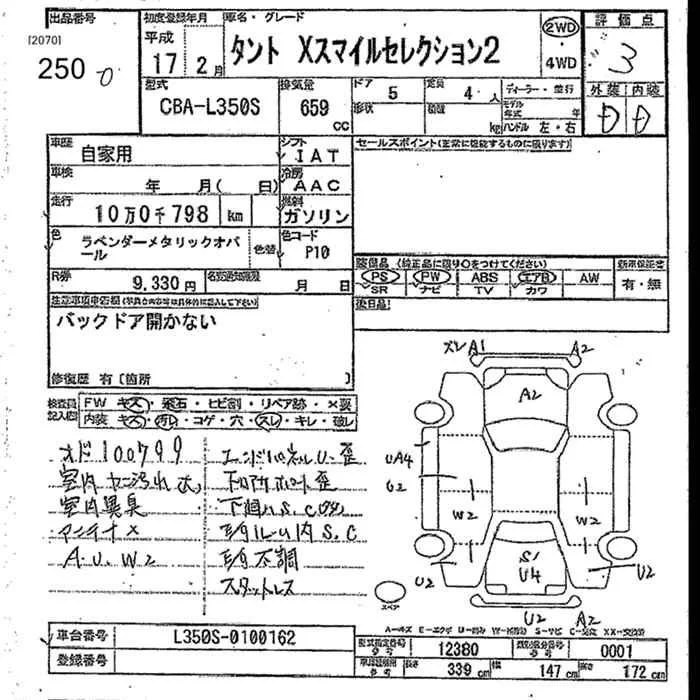 出品番号
[2070]
250 0
初度登録年月
平成
17 2月
車名・グレード
タント Xスマイルセレクション2
2WD
・
4WD
評価点
3
外装 内装
D D
型式
CBA-L350S
排気量
659
cc
ドア 5
定員 4 人
形状
積載 kg
ディーラー・並行
モデル
年式 年
ハンドル 左・右
車歴
自家用
シフト
IAT
車検
年 月( 日)
冷房
AAC
走行
10万0千798 km
燃料
ガソリン
色
ラベンダーメタリックオパール
色替
色コード
P10
R券
9,330円
名変通知期限
月 日
セールスポイント(正常に機能するものに限ります)
装備品 (純正品に限り○をつけてください)
PS PW ABS エアB AW
SR ナビ TV カワ
新車保証書
有・無
後日品!
注意事項申告欄
バックドア開かない
修復歴 有〔箇所 〕
検査員
記入欄
FW キズ・飛石・ヒビ割・リペア跡・×要
内装 キズ・汚レ・コゲ・穴・スレ・キレ・破レ
オド100799
室内ヤニ汚れ大
室内異臭
アンテナ×
A.U.W2
エンドパネルU・歪
下廻りS.C
S.C
不調
スタットレス
ズレ A1 A2
A2
UA4
U2
W2 W2
S1
U4
U2 U2
U2 A2
スペア
A-キズ E-エクボ U-凹み S-サビ
車台番号
L350S-0100162
登録番号
型式指定番号 12380
類別区分番号 0001
長さ 339 cm
幅 147 cm
高さ 172 cm